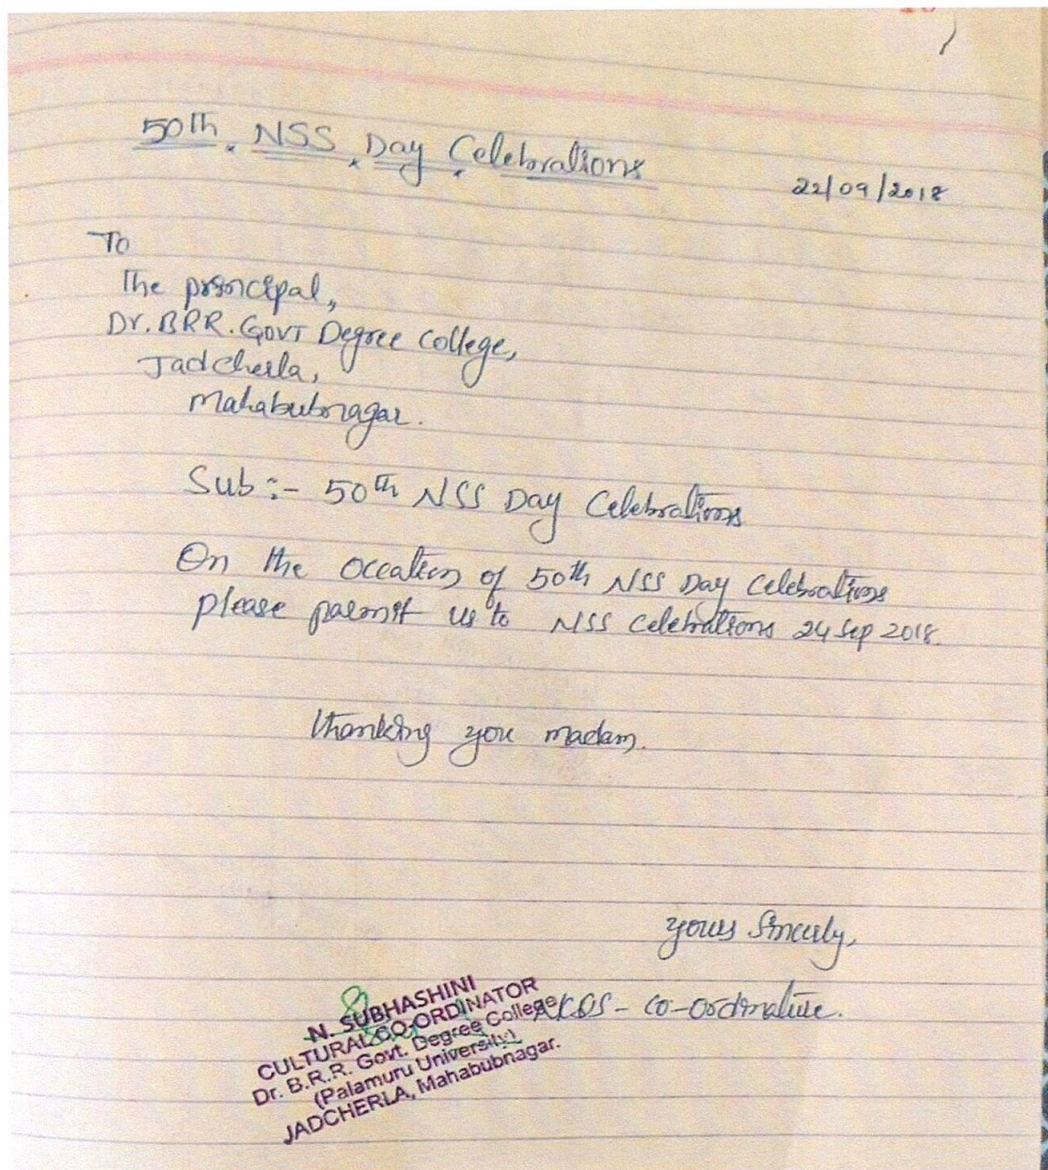 50th NSS Day Celebrations
22/09/2018
To
The principal,
Dr. BRR. GOVT Degree College,
Jadcherla,
Mahabubnagar.
Sub :- 50th NSS Day Celebrations
On the occation of 50th NSS Day Celebrations
please permit us to NSS Celebrations 24 Sep 2018.
Thanking you madam.
yours Sincerly,
Co-ordinative.
N. SUBHASHINI
CULTURAL CO-ORDINATOR
Dr. B.R.R. Govt. Degree College
(Palamuru University)
JADCHERLA, Mahabubnagar.